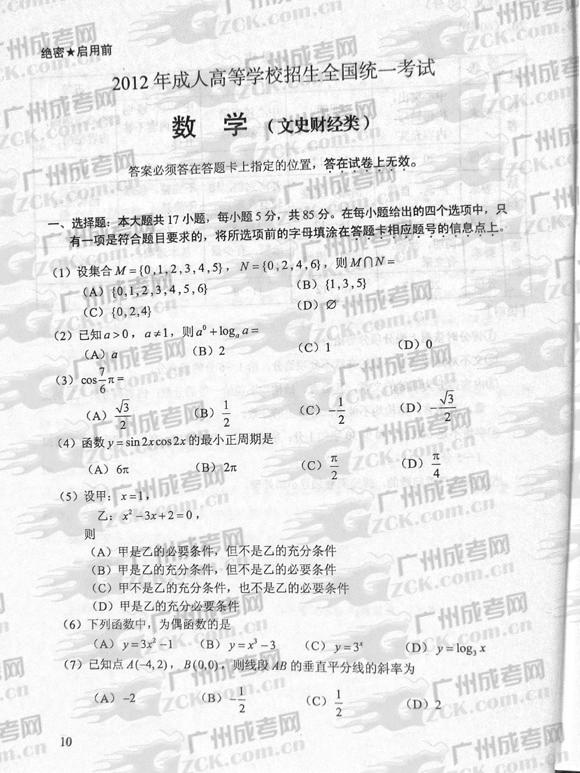 绝密★启用前
2012年成人高等学校招生全国统一考试
数 学 （文史财经类）
答案必须答在答题卡上指定的位置，答在试卷上无效。
一、选择题：本大题共17小题，每小题5分，共85分。在每小题给出的四个选项中，只
有一项是符合题目要求的，将所选项前的字母填涂在答题卡相应题号的信息点上。
（1）设集合 M={0,1,2,3,4,5}，N={0,2,4,6}，则 M⋂N=
（A）{0,1,2,3,4,5,6} （B）{1,3,5}
（C）{0,2,4} （D）∅
（2）已知 a>0，a≠1，则 a⁰+logₐ a=
（A）a （B）2 （C）1 （D）0
（3）cos 7/6 π=
（A）√3/2 （B）1/2 （C）-1/2 （D）-√3/2
（4）函数 y=sin2xcos2x 的最小正周期是
（A）6π （B）2π （C）π/2 （D）π/4
（5）设甲：x=1，
乙：x²-3x+2=0，
则
（A）甲是乙的必要条件，但不是乙的充分条件
（B）甲是乙的充分条件，但不是乙的必要条件
（C）甲不是乙的充分条件，也不是乙的必要条件
（D）甲是乙的充分必要条件
（6）下列函数中，为偶函数的是
（A）y=3x²-1 （B）y=x³-3 （C）y=3ˣ （D）y=log₃ x
（7）已知点 A(-4,2)，B(0,0)，则线段 AB 的垂直平分线的斜率为
（A）-2 （B）-1/2 （C）1/2 （D）2
10
广州成考网
GZCK.com.cn